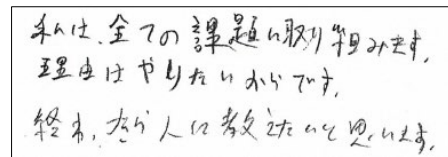 私は、全ての課題に取り組みます。
理由はやりたいからです。
終わったら人に教えたいと思います。